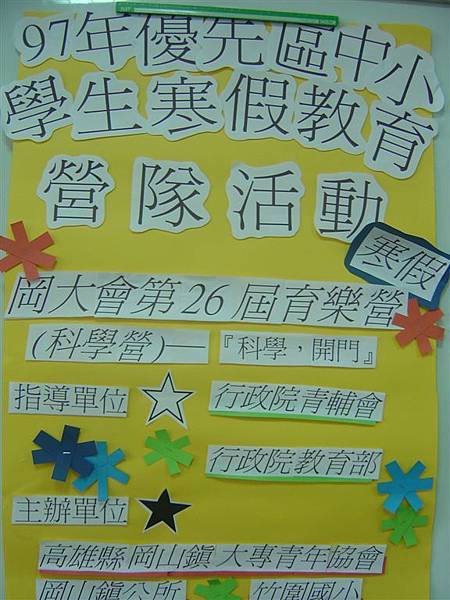 97年優先區中小
學生寒假教育
營隊活動
寒假
岡大會第26屆育樂營
(科學營)—『科學，開門』
指導單位 行政院青輔會
行政院教育部
主辦單位
高雄縣岡山鎮大專青年協會
岡山鎮公所 竹圍國小